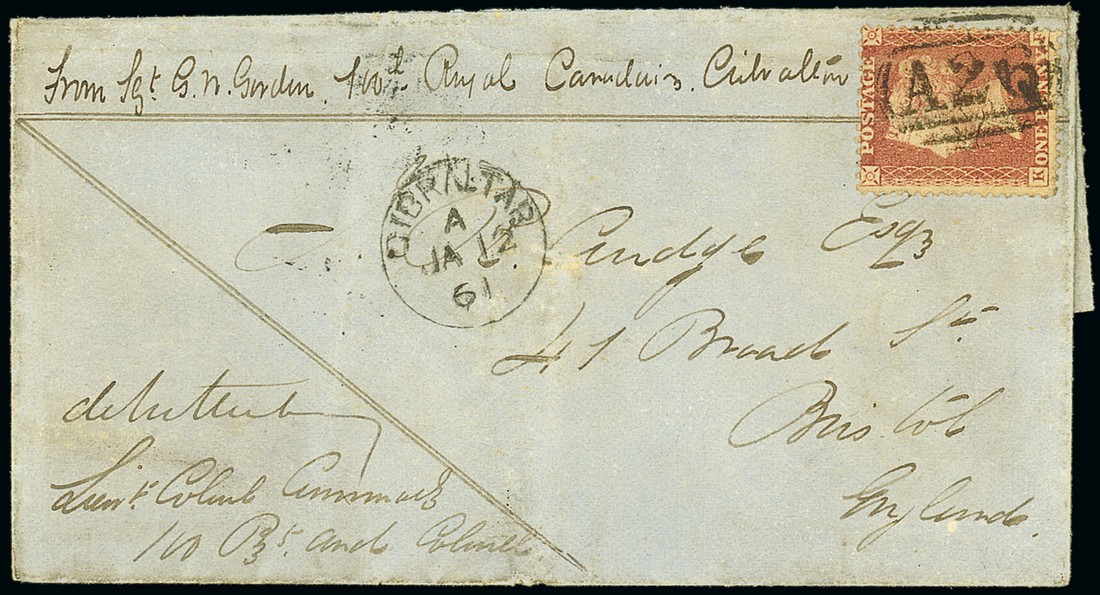 From Sgt. G. W. Gordon. 100th Royal Canadians. Gibraltar
POSTAGE
ONE PENNY
K
A26
GIBRALTAR
A
JA 12
61
Esqr
41 Broad St.
Bristol
England
Lieut. Colonel
100 Rt. and